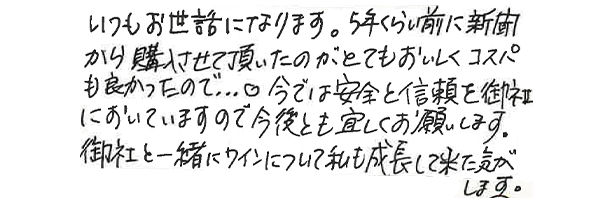 いつもお世話になります。5年くらい前に新聞
から購入させて頂いたのがとてもおいしくコスパ
も良かったので...。今では安全と信頼を御社
においていますので今後とも宜しくお願いします。
御社と一緒にワインについて私も成長して来た気が
します。